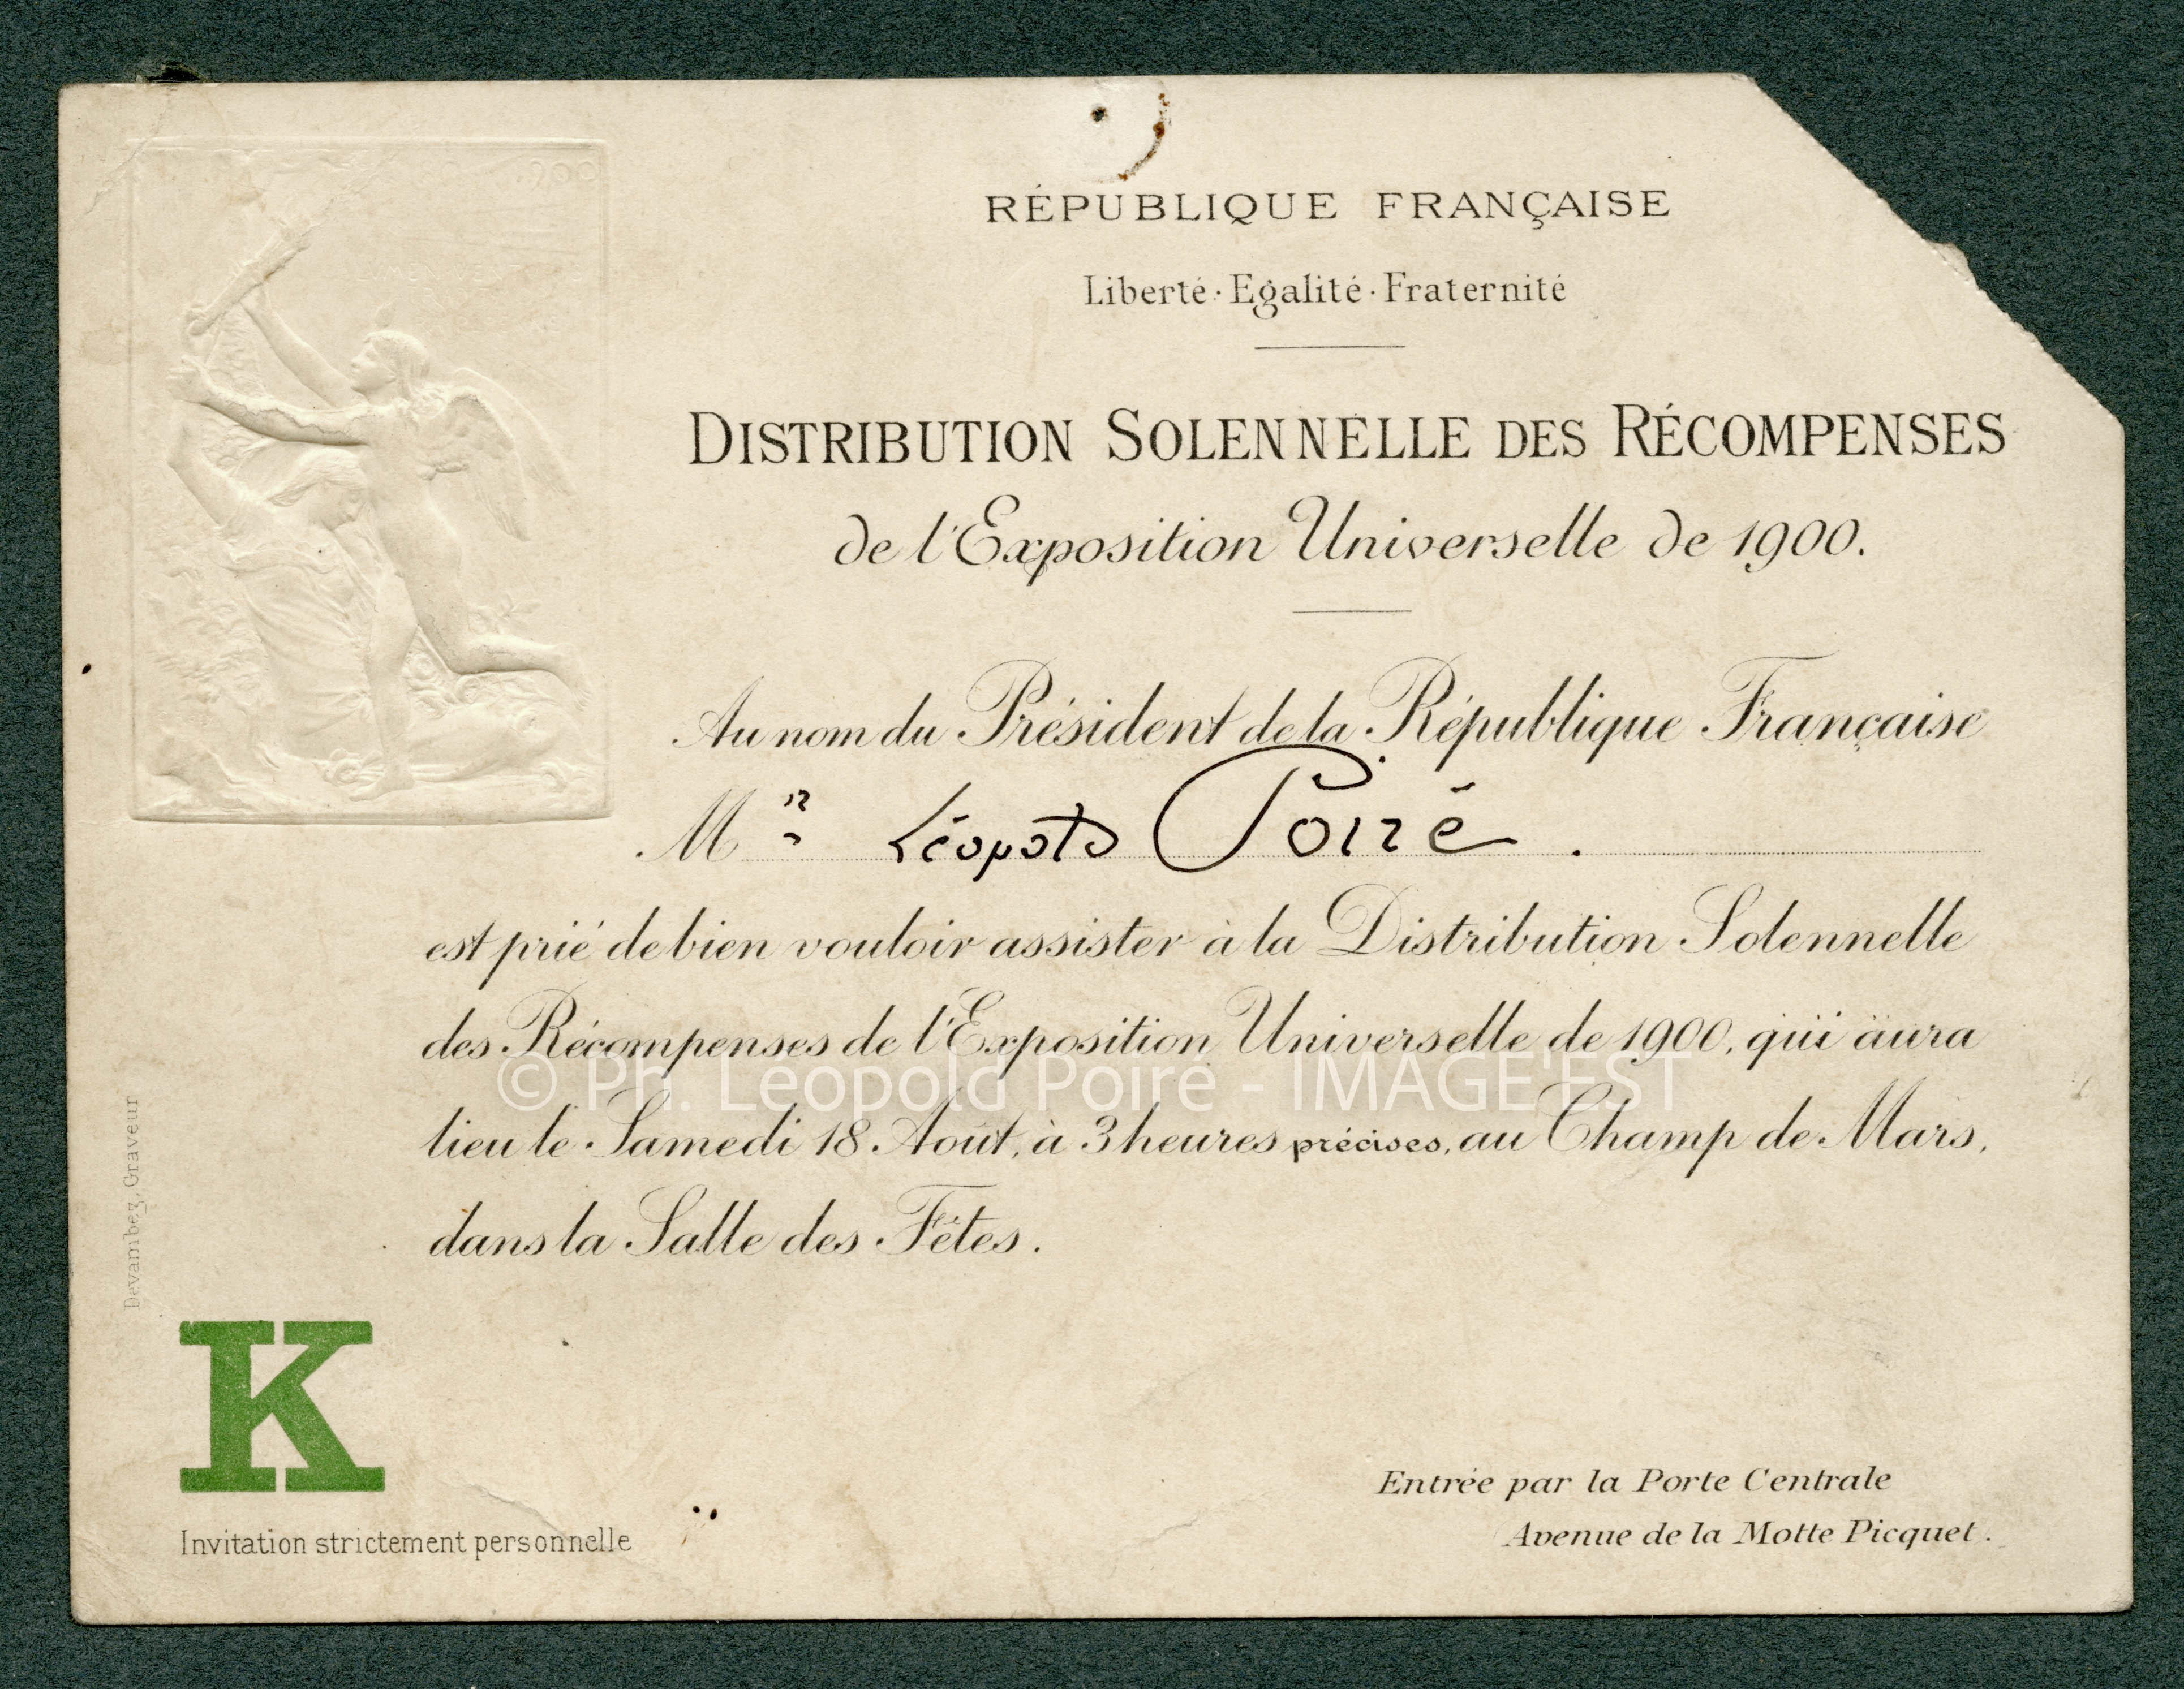 1900
RÉPUBLIQUE FRANÇAISE
Liberté · Egalité · Fraternité
DISTRIBUTION SOLENNELLE DES RÉCOMPENSES
de l'Exposition Universelle de 1900.
Au nom du Président de la République Française
Mr Léopold Poiré.
est prié de bien vouloir assister à la Distribution Solennelle
des Récompenses de l'Exposition Universelle de 1900, qui aura
© Ph. Léopold Poiré - IMAGE'EST
lieu le Samedi 18 Août, à 3 heures précises, au Champ de Mars,
dans la Salle des Fêtes.
Devambez, Graveur
K
Invitation strictement personnelle
Entrée par la Porte Centrale
Avenue de la Motte Picquet.